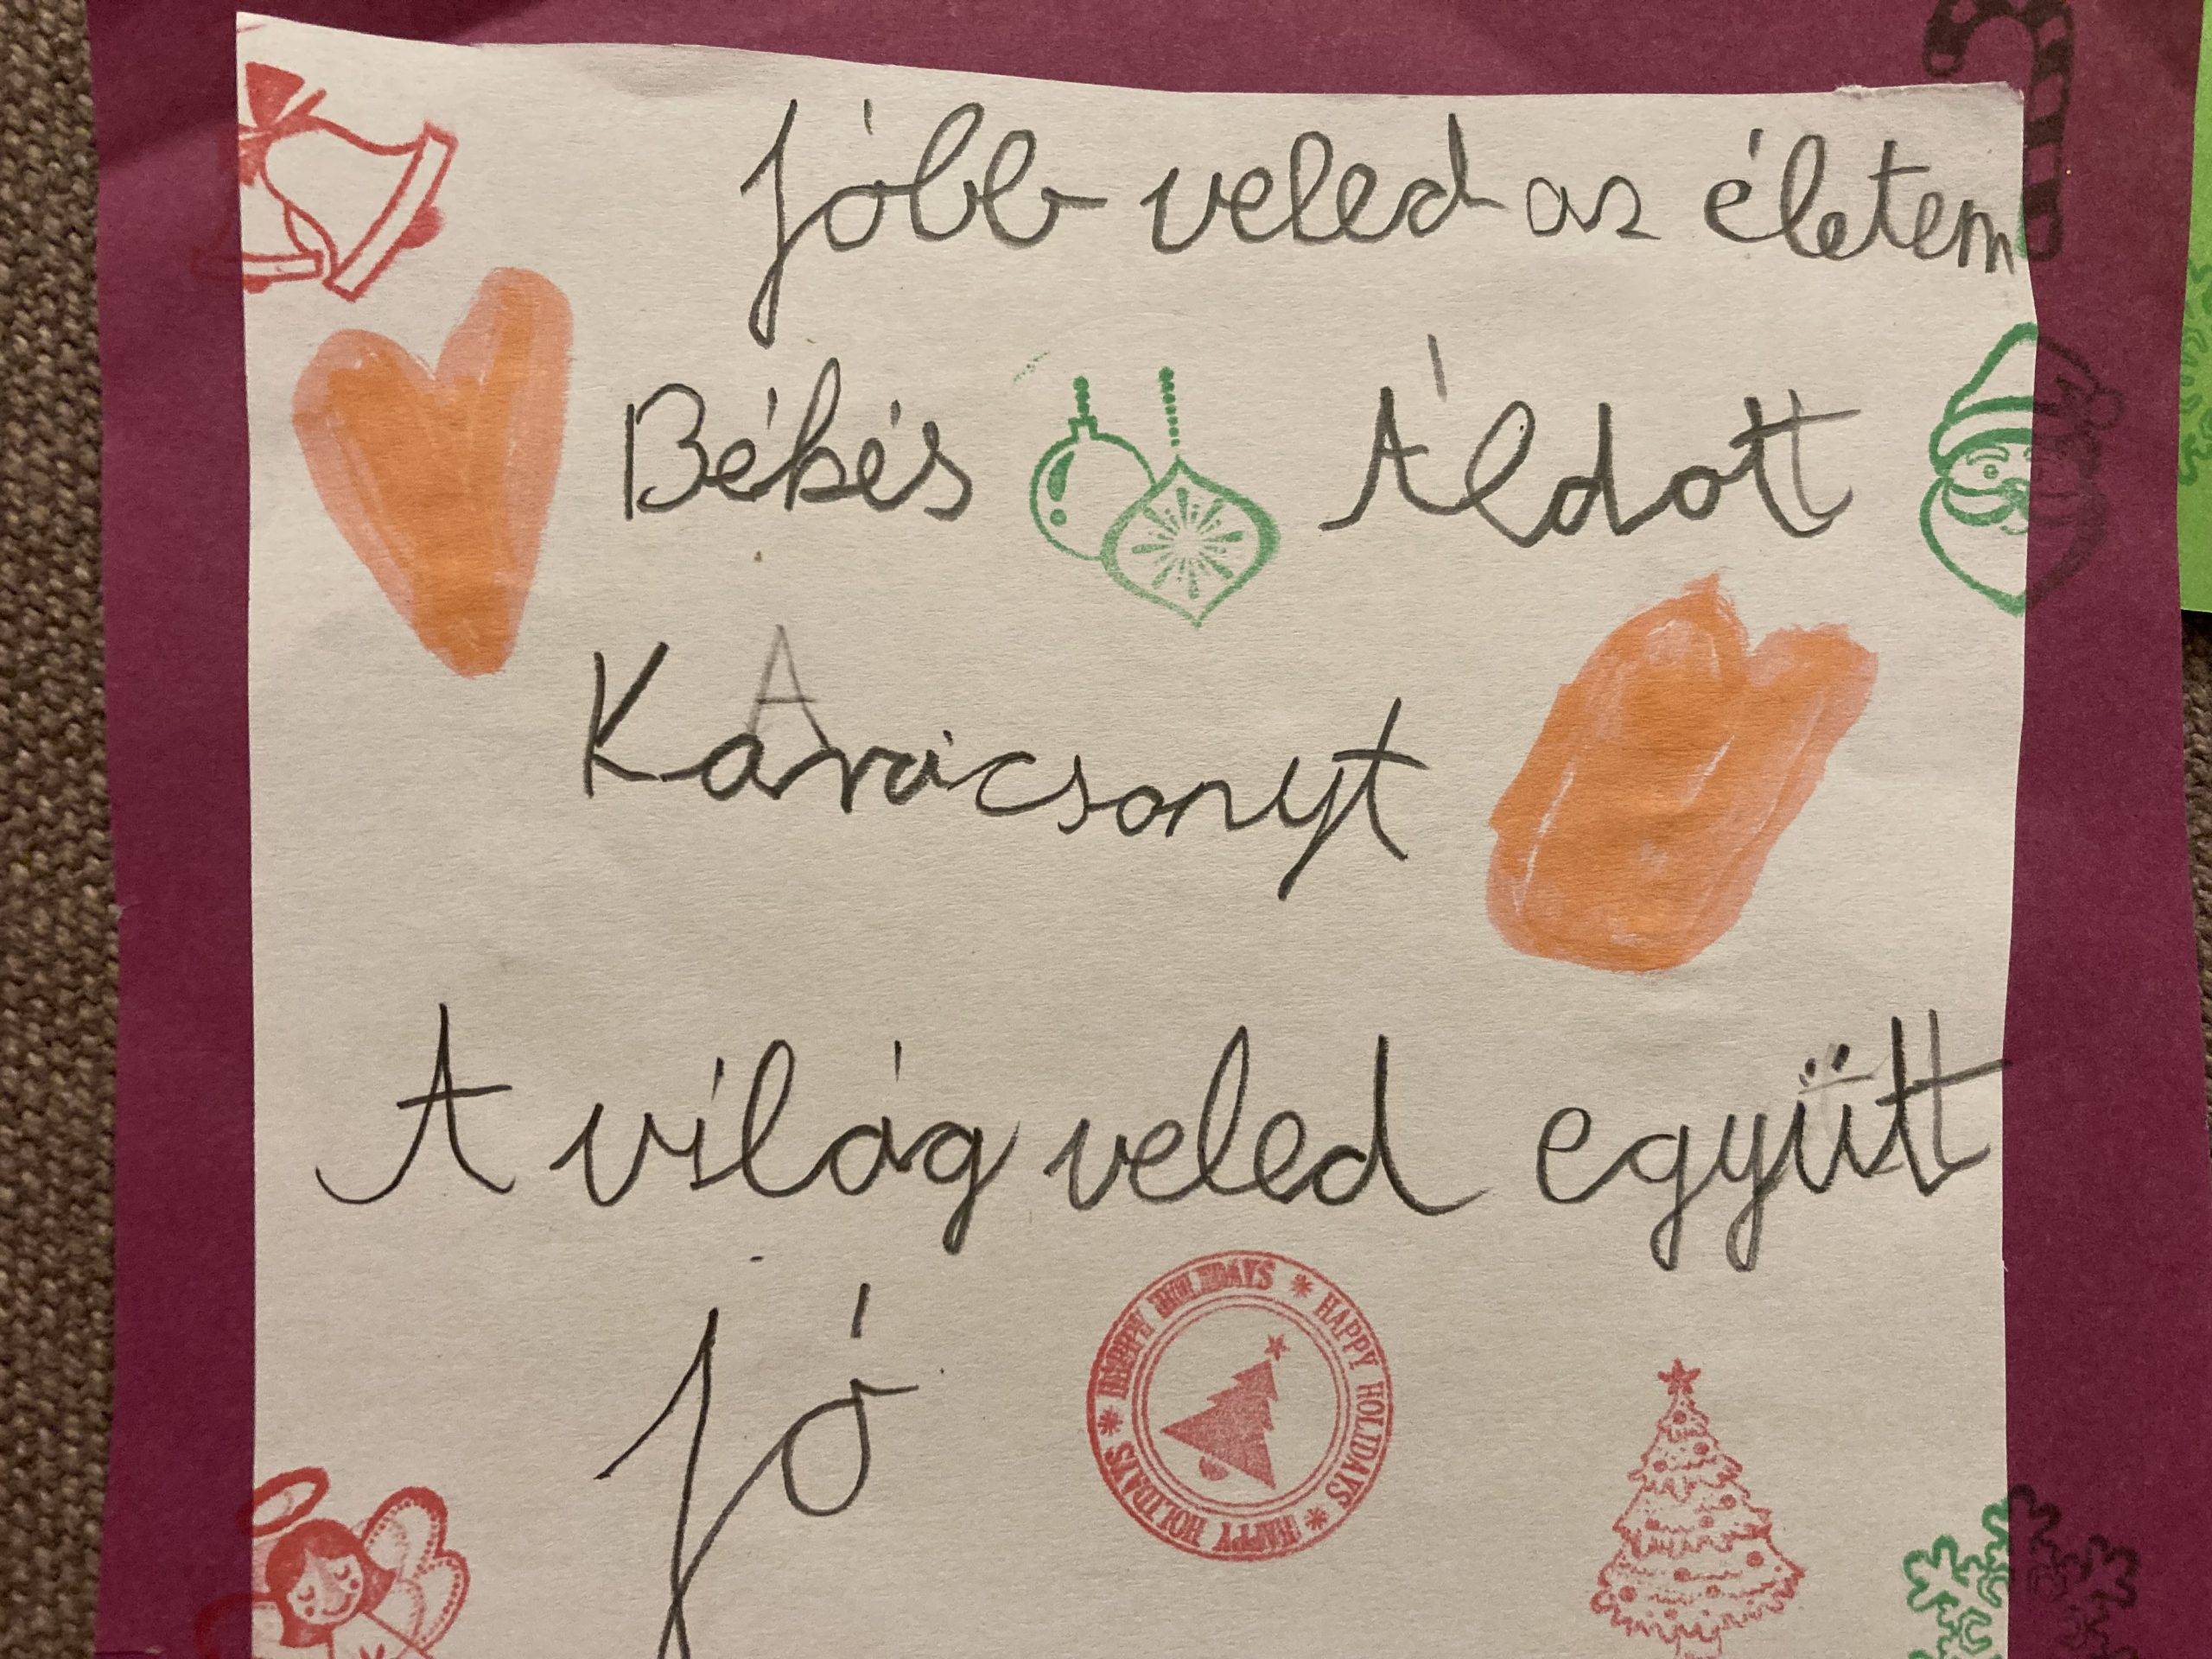 Jobb veled az életem
Békés Áldott
Karácsonyt
A világ veled együtt
Jó
HAPPY HOLIDAYS * HAPPY HOLIDAYS * HAPPY HOLIDAYS *